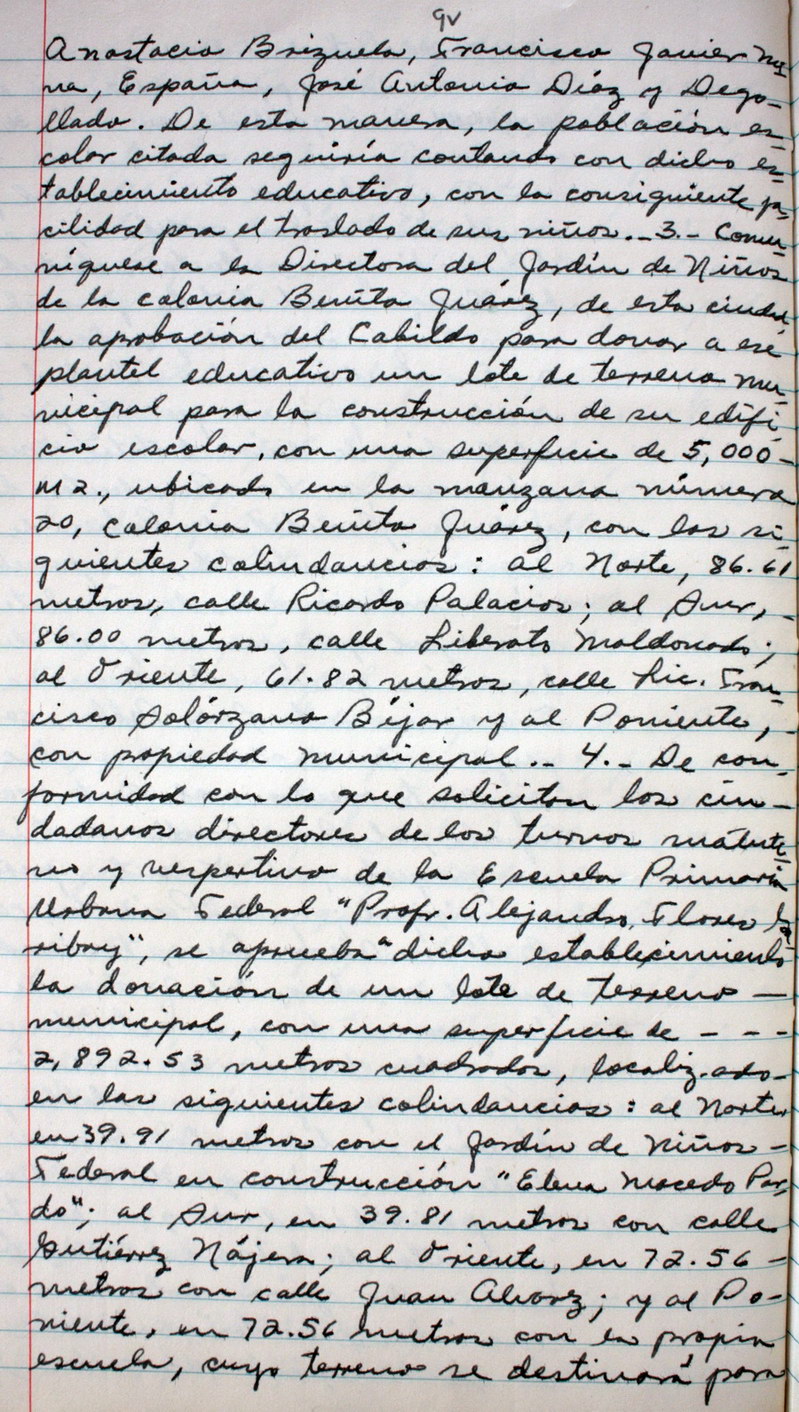 9v
Anastacio Brizuela, Francisco Javier Mi-
na, España, José Antonio Díaz y Dego-
llado. De esta manera, la población es-
colar citada seguiría contando con dicho es-
tablecimiento educativo, con la consiguiente fa-
cilidad para el traslado de sus niños.-- 3.- Comu-
níquese a la Directora del Jardín de Niños
de la colonia Benito Juárez, de esta ciudad,
la aprobación del Cabildo para donar a ese
plantel educativo un lote de terreno mu-
nicipal para la construcción de su edifi-
cio escolar, con una superficie de 5,000-
M2., ubicado en la manzana número
20, colonia Benito Juárez, con las si-
guientes colindancias: al Norte, 86.61
metros, calle Ricardo Palacios; al Sur,-
86.00 metros, calle Liberato Maldonado;
al Oriente, 61.82 metros, calle Lic. Fran-
cisco Solórzano Béjar y al Poniente,-
con propiedad municipal.-- 4.- De con-
formidad con lo que solicitan los ciu-
dadanos directores de los turnos matuti-
no y vespertino de la Escuela Primaria
Urbana Federal "Profr. Alejandro Flores Ga-
ribay", se aprueba a dicho establecimiento
la donación de un lote de terreno —
municipal, con una superficie de - - -
2,892.53 metros cuadrados, localizado-
en las siguientes colindancias: al Norte,
en 39.91 metros con el Jardín de Niños-
Federal en construcción "Elena Macedo Par-
do"; al Sur, en 39.81 metros con calle
Gutiérrez Nájera; al Oriente, en 72.56 -
metros con calle Juan Alvarez; y al Po-
niente, en 72.56 metros con la propia
escuela, cuyo terreno se destinará para